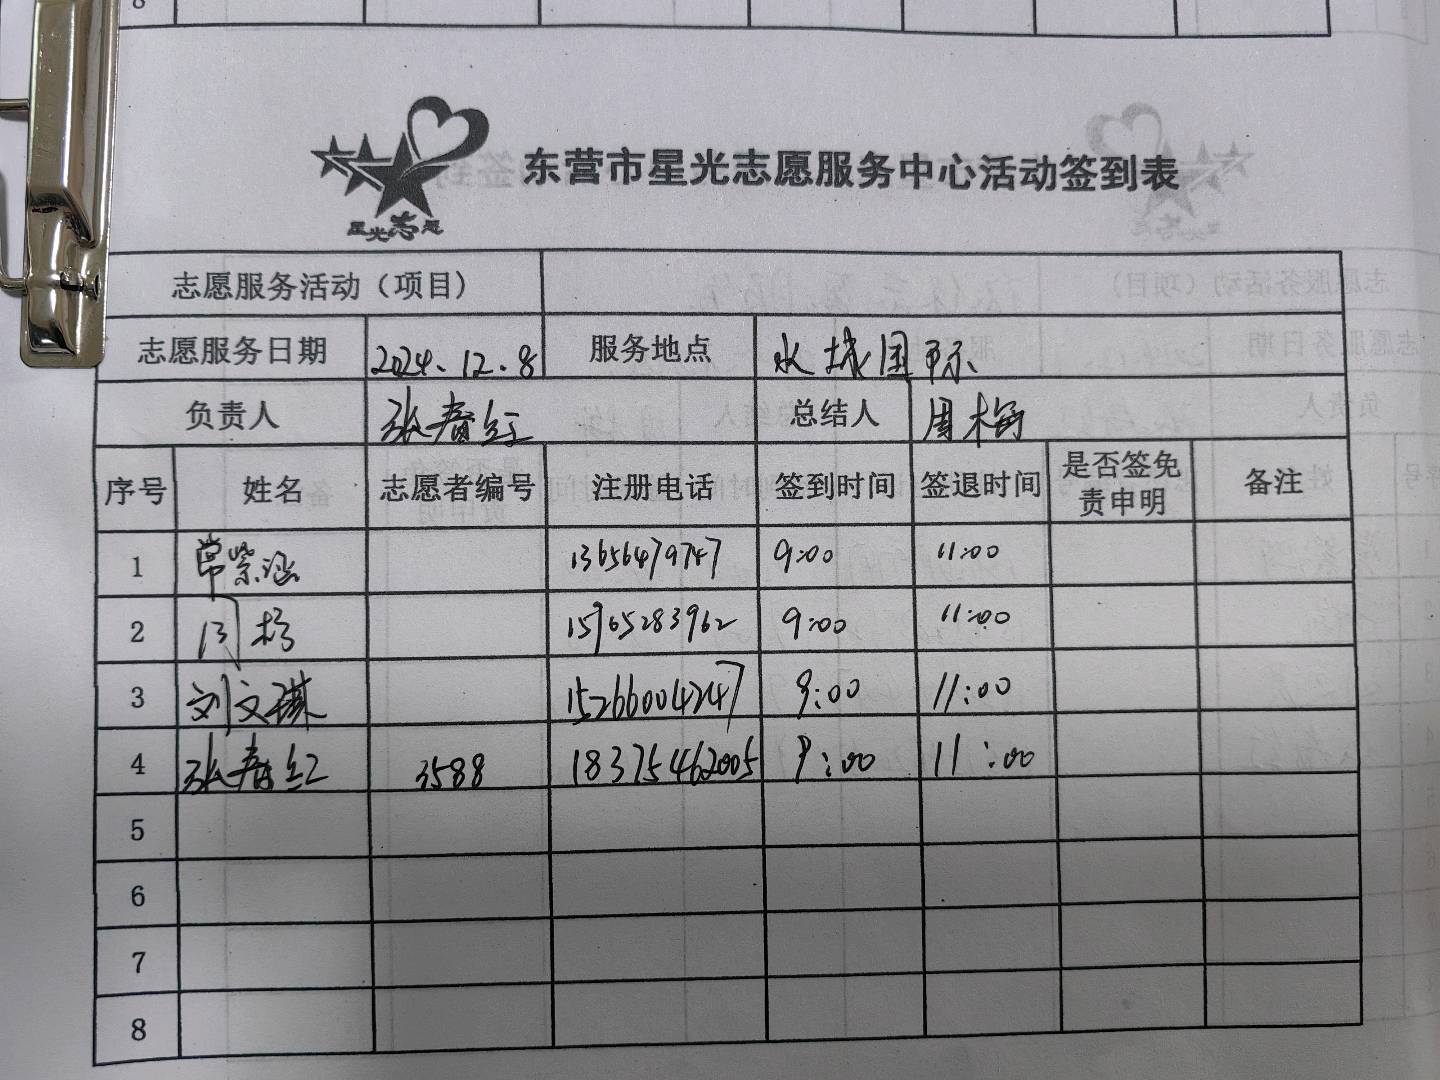 8
星光志愿
东营市星光志愿服务中心活动签到表
志愿服务活动（项目）
志愿服务日期 2024.12.8 服务地点 水城国际
负责人 张春红 总结人 周梅
序号 姓名 志愿者编号 注册电话 签到时间 签退时间 是否签免责申明 备注
1 常紫涵 13656479747 9:00 11:00
2 15965283962 9:00 11:00
3 刘文琪 15266004247 9:00 11:00
4 张春红 3588 18375462005 9:00 11:00
5
6
7
8